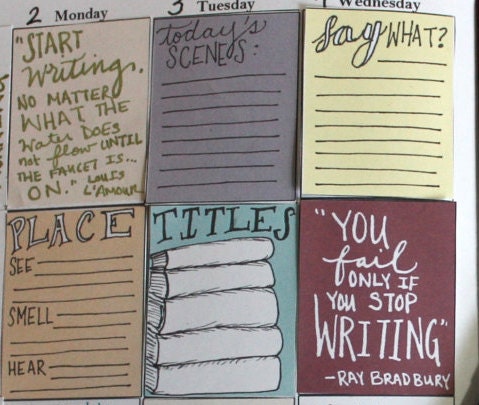 2 Monday
3 Tuesday
Wednesday
"START
Writing,
NO MATTER
WHAT. THE
Water DOES
not flow UNTIL
THE FAUCET IS...
ON." LOUIS
L'AMOUR
today's
SCENES:
Say WHAT?
PLACE
SEE
SMELL
HEAR
TITLES
"YOU
fail
ONLY IF
YOU STOP
WRITING"
-RAY BRADBURY